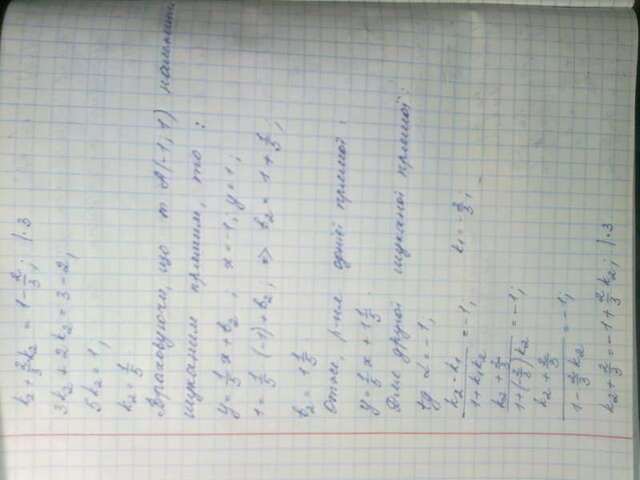 k₂ + 2/3 k₂ = 1 - 2/3; | ·3
3k₂ + 2k₂ = 3 - 2,
5k₂ = 1,
k₂ = 1/5
Враховуючи, що т A(-1; 1) належить
шуканим прямим, то :
y = 1/5 x + b₂ ; x = -1; y = 1,
1 = 1/5 · (-1) + b₂ ; => b₂ = 1 + 1/5 ;
b₂ = 1 1/5.
Отже, р-ня одної прямої :
y = 1/5 x + 1 1/5.
Для другої шуканої прямої :
tg α = -1,
(k₂ - k₁)/(1 + k₁k₂) = -1, k₁ = -2/3;
(k₂ + 2/3)/(1 + (-2/3)k₂) = -1;
(k₂ + 2/3)/(1 - 2/3 k₂) = -1;
k₂ + 2/3 = -1 + 2/3 k₂; | ·3